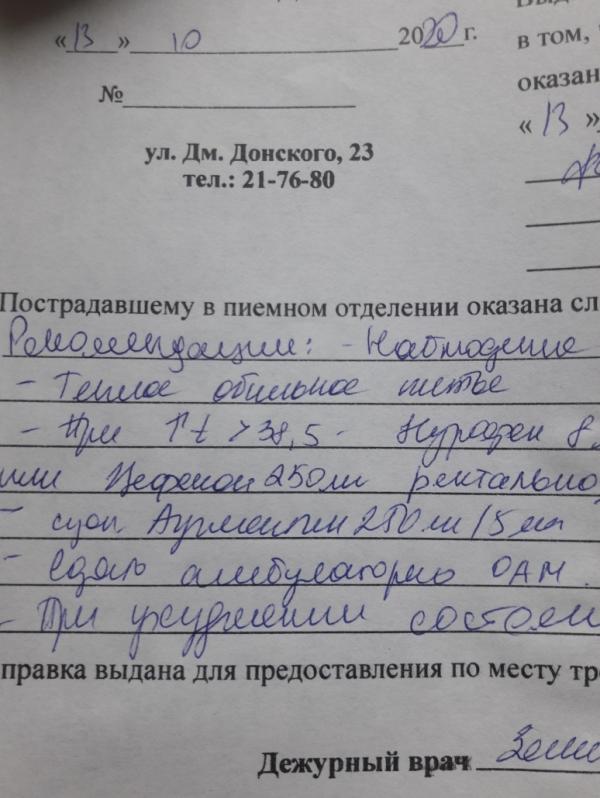 « 13 » 10 2020 г.
в том,
оказан
№
« 13 »
ул. Дм. Донского, 23
тел.: 21-76-80
Пострадавшему в пиемном отделении оказана сл
Рекомендации: - Наблюдение
- Теплое обильное питье
- При ↑t >38,5 - Нурофен 8
или Цефекон 250мг ректально
- сусп Аугментин 250мг/5мл
- Сдать амбулаторно ОАМ.
- При ухудшении состоян
правка выдана для предоставления по месту тр
Дежурный врач